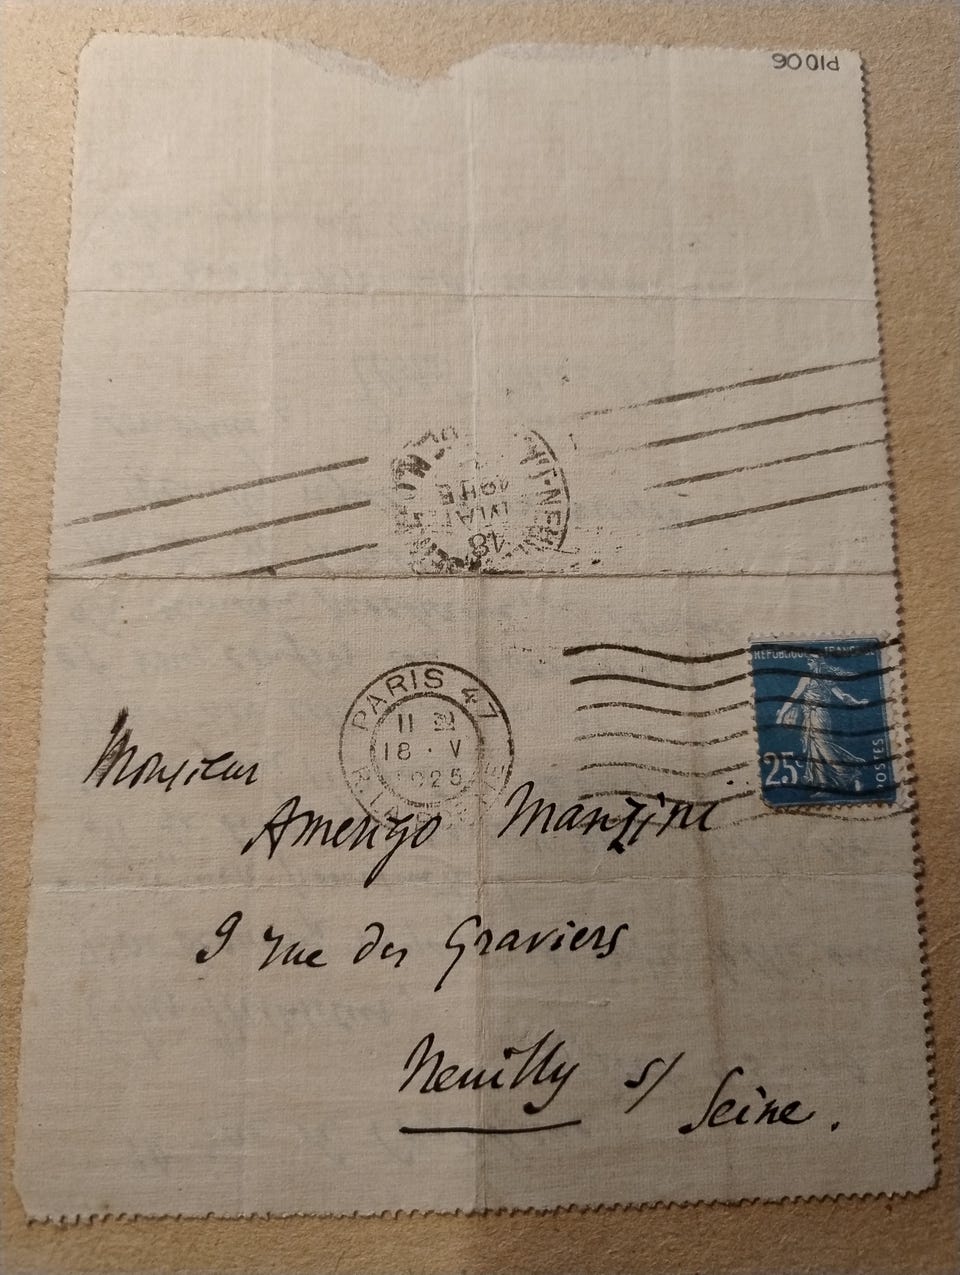 P1006
18
MAI
PARIS 47
11
18 · V
1925
REPUBLIQUE FRANCAISE
25
POSTES
Monsieur
Amerigo Manzini
9 rue des Graviers
Neuilly s/
Seine.